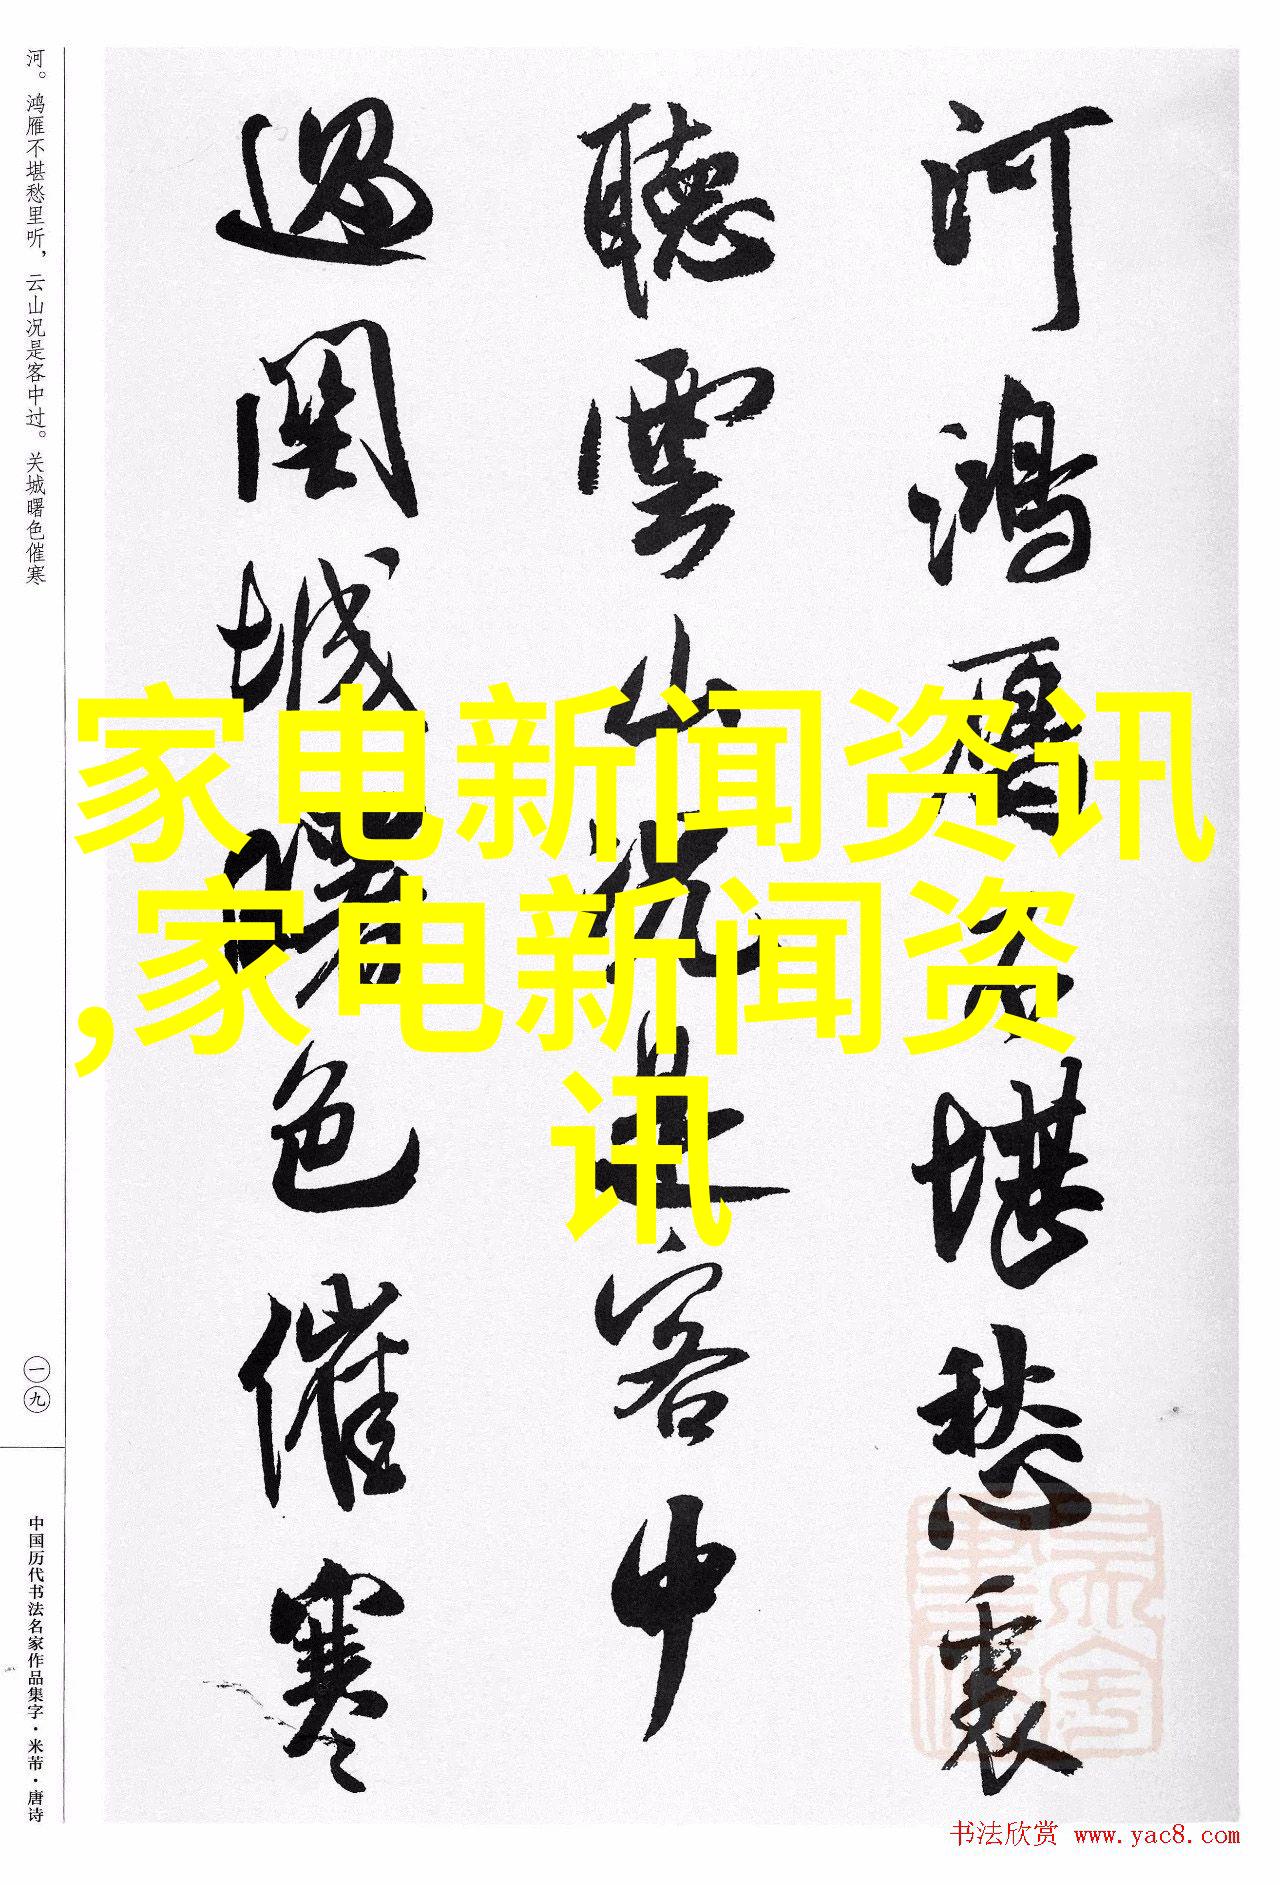 河鴻雁不堪愁裏
聽雲山況是客中
過關城曙色催寒
河。鸿雁不堪愁里听，云山况是客中过。关城曙色催寒
一九
中国历代书法名家作品集字·米芾·唐诗
家电新闻资讯
,家电新闻资
讯
书法欣赏 www.yac8.com